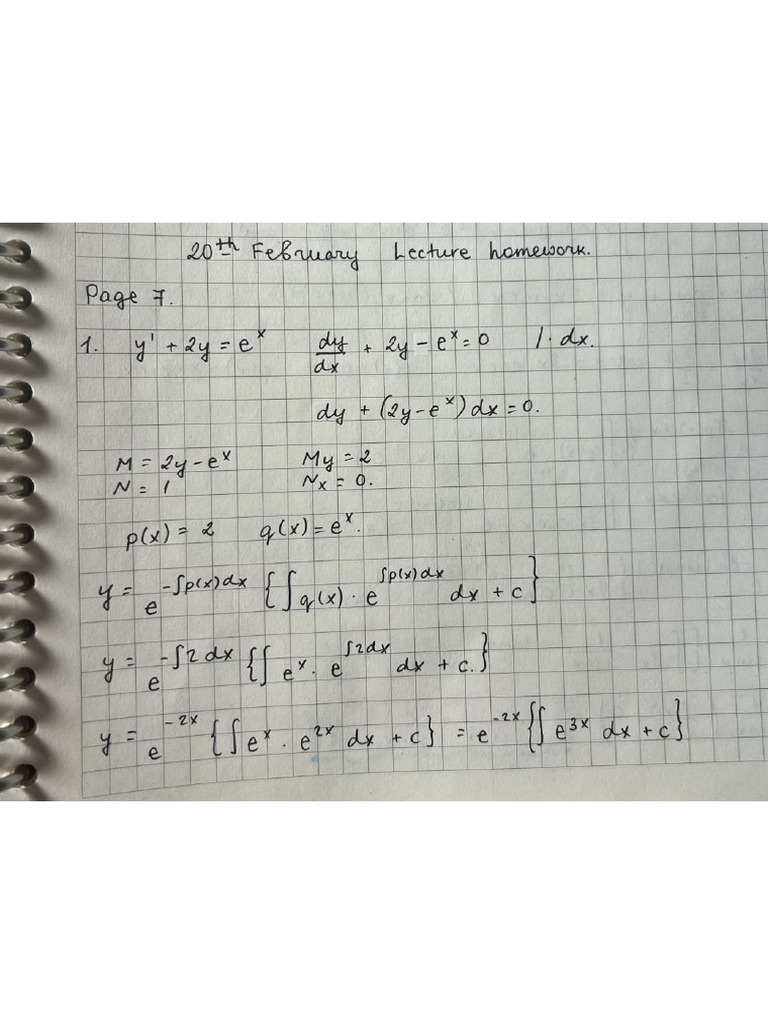 20th February Lecture homework.
Page 7.
1. y' + 2y = e^x dy/dx + 2y - e^x = 0 /· dx.
dy + (2y - e^x) dx = 0.
M = 2y - e^x My = 2
N = 1 Nx = 0.
p(x) = 2 q(x) = e^x.
y = e^{-∫p(x)dx} {∫q(x) · e^{∫p(x)dx} dx + c}
y = e^{-∫2dx} {∫e^x · e^{∫2dx} dx + c.}
y = e^{-2x} {∫e^x · e^{2x} dx + c} = e^{-2x} {∫e^{3x} dx + c}